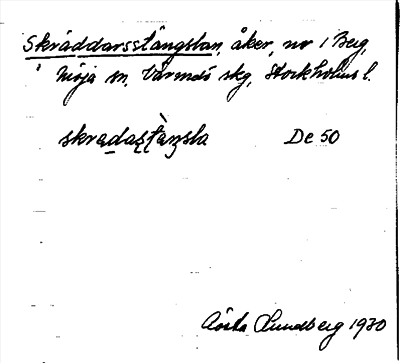 Skräddarsstängslan, åker, nr 1 Berg,
Möja sn, Värmdö skg, Stockholms l.
skradastänsla De 50
Gösta Lundberg 1930